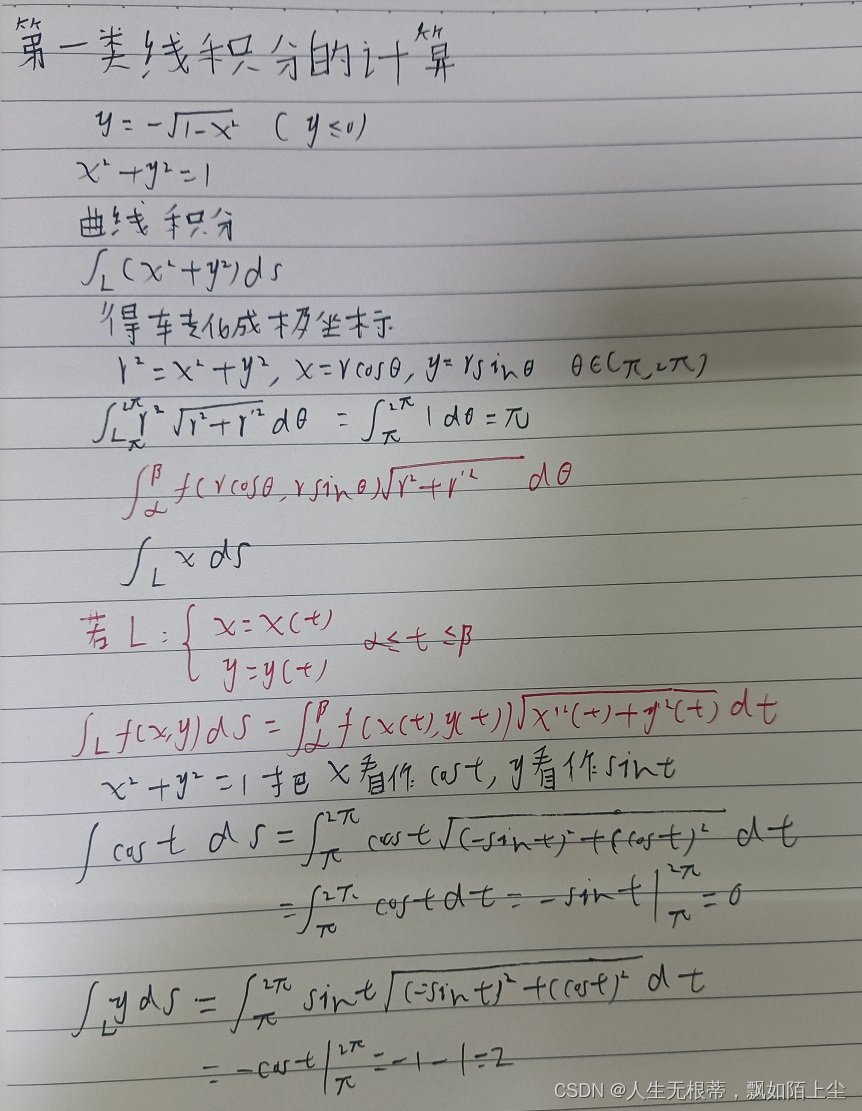 第一类线积分的计算
y = -√(1-x²) (y≤0)
x²+y²=1
曲线积分
∫_L (x²+y²)ds
得车专化成极坐标
r²=x²+y², x=rcosθ, y=rsinθ θ∈(π,2π)
∫_L π^2π r² √(r²+r'²) dθ = ∫_π^2π 1 dθ = π
∫_α^β f(rcosθ, rsinθ)√(r²+r'²) dθ
∫_L x ds
若 L: { x=x(t)
y=y(t) α≤t≤β
∫_L f(x,y)ds = ∫_α^β f(x(t),y(t))√(x'²(t)+y'²(t)) dt
x²+y²=1 把x看作cost, y看作sint
∫ cost ds = ∫_π^2π cost√((-sint)²+(cost)²) dt
= ∫_π^2π cost dt = -sint|_π^2π = 0
∫_L y ds = ∫_π^2π sint√((-sint)²+(cost)²) dt
= -cost|_π^2π = -1-1=2
CSDN @人生无根蒂，飘如陌上尘